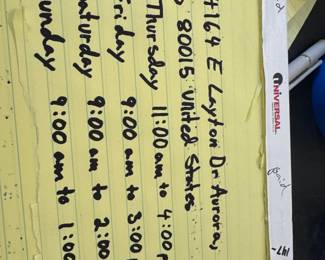 4164 E Layton Dr Aurora,
80015 United States
Thursday 11:00 am to 4:00 p
Friday 9:00 am to 3:00
aturday 9:00 am to 2:00
unday 9:00 am to 1:00
UNIVERSAL
paid
147-